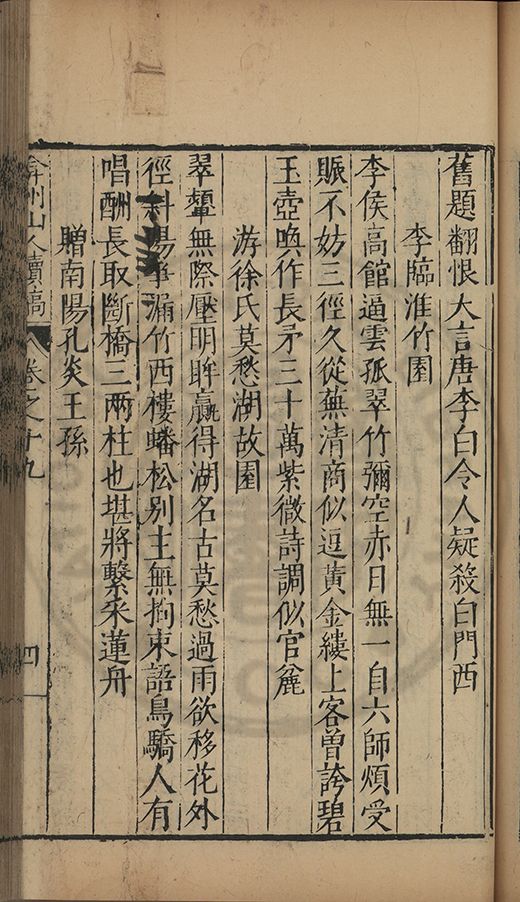 舊題翻恨大言唐李白令人疑殺白門西
李臨淮竹園
李侯高館逼雲孤翠竹彌空赤日無一自六師煩受
賑不妨三徑久從蕪清商似逗黃金縷上客曾誇碧
玉壺喚作長矛三十萬紫薇詩調似官麄
游徐氏莫愁湖故園
翠顰無際壓明眸贏得湖名古莫愁過雨欲移花外
徑斜陽爭漏竹西樓蟠松別主無拘束語鳥驕人有
唱酬長取斷橋三兩柱也堪將繫采蓮舟
贈南陽孔炎王孫
弇州山人續稿 卷之十九 四